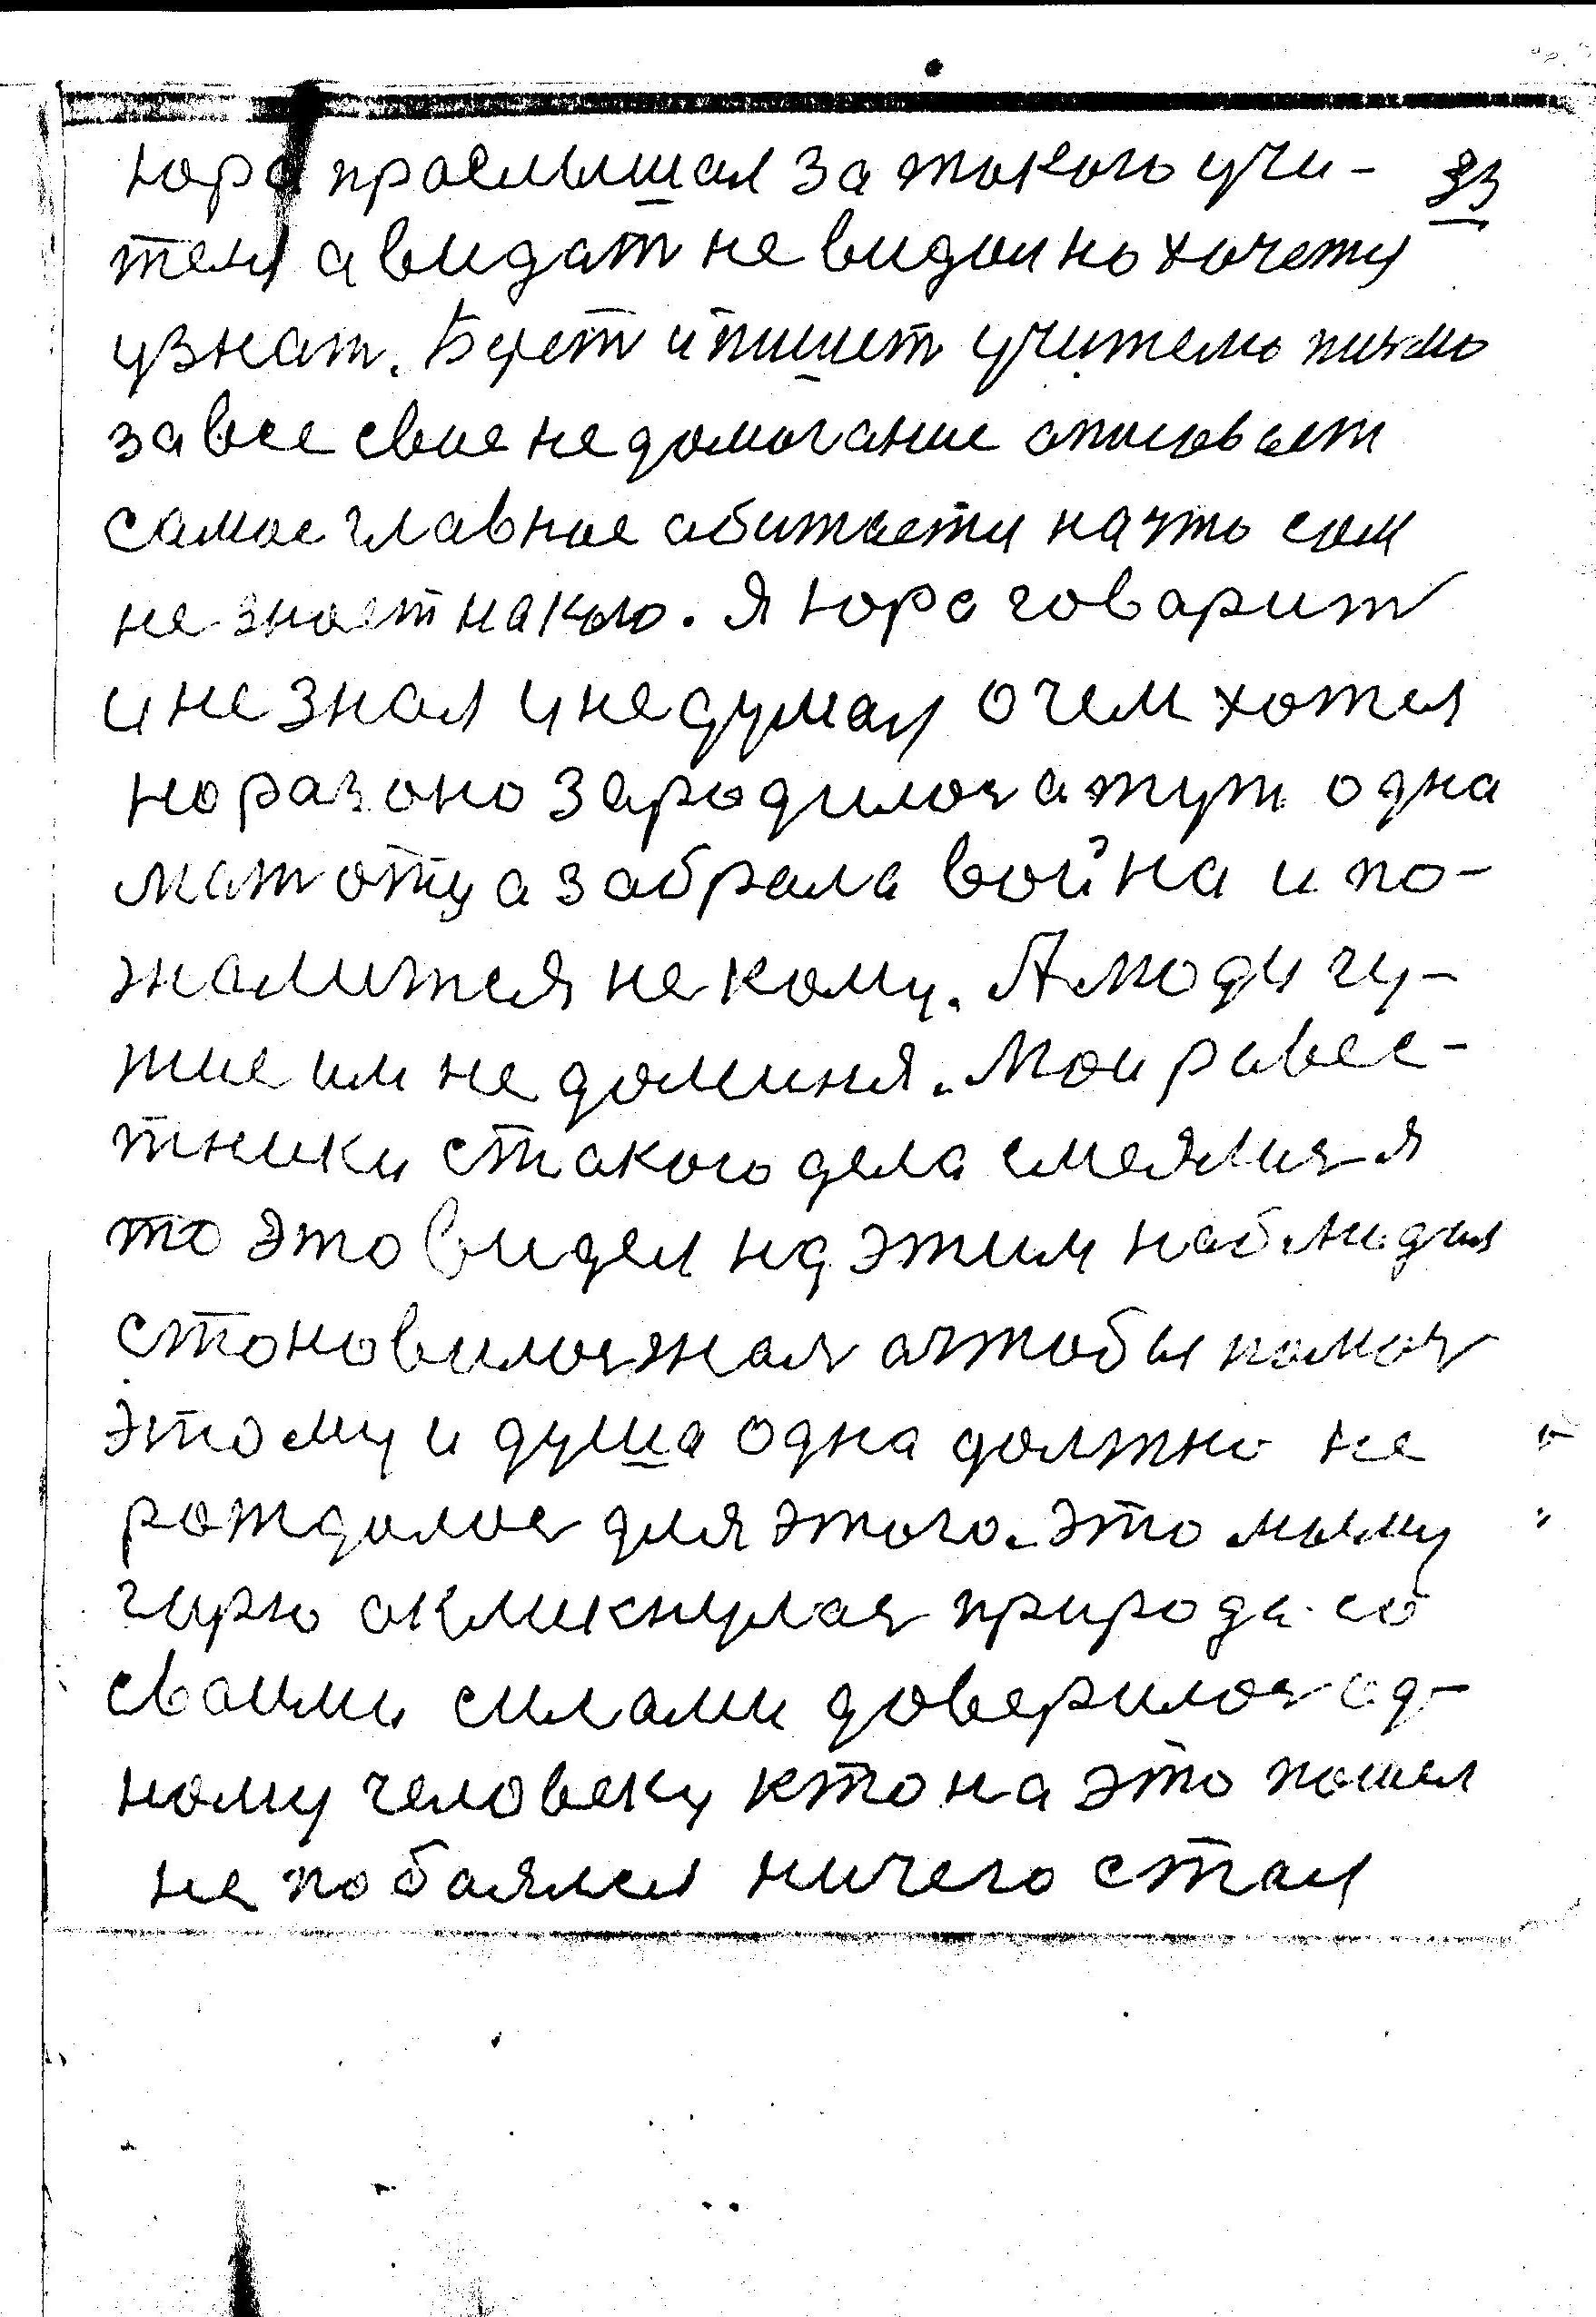 юра прослышал за такого учи- 33
теля а видат не видал но хочется
узнат. Берет и пишет учителю письмо
за все свое недомогание описовает
самое главное обитается на что сам
не знает на кого. Я юра говарит
и не знал и не думал о чем хотел
но раз оно зародилось а тут одна
мат отца забрала война и по-
жалится не кому. А люди чу-
жие им не до миня. Мои равес-
тники с такого дела смеялися я
то это видел над этим наблюдал
становилось жаль а чтобы помоч
этому и душа одна должно не
рождалось для этого. Это моему
горю окликнулась природа со
своими силами доверилось од-
ному человеку кто на это пошел
не побаялся ничего стал